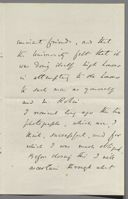 eminent friends, and that
the University felt that it
was doing itself high honour
in attempting to do honour
to such men as yourself
and Mr
I received long ago the two
photographs, which are, I
think, successful, and for
which I was much obliged.
Before doing this I will
ascertain through what